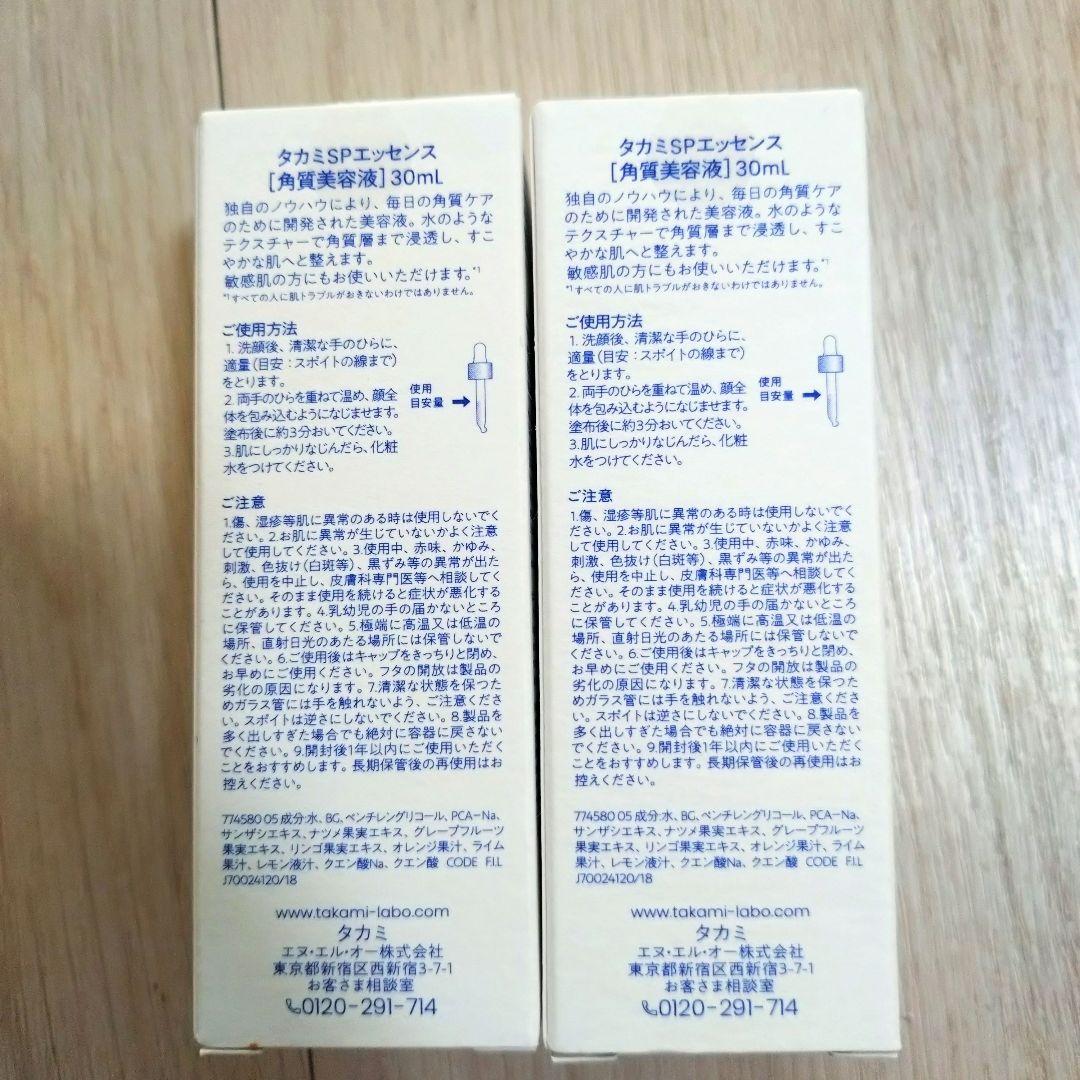 タカミSPエッセンス
[角質美容液]30mL
独自のノウハウにより、毎日の角質ケア
のために開発された美容液。水のような
テクスチャーで角質層まで浸透し、すこ
やかな肌へと整えます。
敏感肌の方にもお使いいただけます。*1
*1すべての人に肌トラブルがおきないわけではありません。
ご使用方法
1. 洗顔後、清潔な手のひらに、
適量(目安:スポイトの線まで)
をとります。
2. 両手のひらを重ねて温め、顔全
体を包み込むようになじませます。
塗布後に約3分おいてください。
3.肌にしっかりなじんだら、化粧
水をつけてください。
使用
目安量
ご注意
1.傷、湿疹等肌に異常のある時は使用しないでく
ださい。2.お肌に異常が生じていないかよく注意
して使用してください。3.使用中、赤味、かゆみ、
刺激、色抜け(白斑等)、黒ずみ等の異常が出た
ら、使用を中止し、皮膚科専門医等へ相談してく
ださい。そのまま使用を続けると症状が悪化する
ことがあります。4.乳幼児の手の届かないところ
に保管してください。5.極端に高温又は低温の
場所、直射日光のあたる場所には保管しないで
ください。6.ご使用後はキャップをきっちりと閉め、
お早めにご使用ください。フタの開放は製品の
劣化の原因になります。7.清潔な状態を保つた
めガラス管には手を触れないよう、ご注意くださ
い。スポイトは逆さにしないでください。8.製品を
多く出しすぎた場合でも絶対に容器に戻さない
でください。9.開封後1年以内にご使用いただく
ことをおすすめします。長期保管後の再使用はお
控えください。
774580 05 成分:水、BG、ペンチレングリコール、PCA-Na、
サンザシエキス、ナツメ果実エキス、グレープフルーツ
果実エキス、リンゴ果実エキス、オレンジ果汁、ライム
果汁、レモン液汁、クエン酸Na、クエン酸 CODE F.I.L
J70024120/18
www.takami-labo.com
タカミ
エヌ・エル・オー株式会社
東京都新宿区西新宿3-7-1
お客さま相談室
0120-291-714
タカミSPエッセンス
[角質美容液]30mL
独自のノウハウにより、毎日の角質ケア
のために開発された美容液。水のような
テクスチャーで角質層まで浸透し、すこ
やかな肌へと整えます。
敏感肌の方にもお使いいただけます。*1
*1すべての人に肌トラブルがおきないわけではありません。
ご使用方法
1. 洗顔後、清潔な手のひらに、
適量(目安:スポイトの線まで)
をとります。
2. 両手のひらを重ねて温め、顔全
体を包み込むようになじませます。
塗布後に約3分おいてください。
3.肌にしっかりなじんだら、化粧
水をつけてください。
使用
目安量
ご注意
1.傷、湿疹等肌に異常のある時は使用しないでく
ださい。2.お肌に異常が生じていないかよく注意
して使用してください。3.使用中、赤味、かゆみ、
刺激、色抜け(白斑等)、黒ずみ等の異常が出た
ら、使用を中止し、皮膚科専門医等へ相談してく
ださい。そのまま使用を続けると症状が悪化する
ことがあります。4.乳幼児の手の届かないところ
に保管してください。5.極端に高温又は低温の
場所、直射日光のあたる場所には保管しないで
ください。6.ご使用後はキャップをきっちりと閉め、
お早めにご使用ください。フタの開放は製品の
劣化の原因になります。7.清潔な状態を保つた
めガラス管には手を触れないよう、ご注意くださ
い。スポイトは逆さにしないでください。8.製品を
多く出しすぎた場合でも絶対に容器に戻さない
でください。9.開封後1年以内にご使用いただく
ことをおすすめします。長期保管後の再使用はお
控えください。
774580 05 成分:水、BG、ペンチレングリコール、PCA-Na、
サンザシエキス、ナツメ果実エキス、グレープフルーツ
果実エキス、リンゴ果実エキス、オレンジ果汁、ライム
果汁、レモン液汁、クエン酸Na、クエン酸 CODE F.I.L
J70024120/18
www.takami-labo.com
タカミ
エヌ・エル・オー株式会社
東京都新宿区西新宿3-7-1
お客さま相談室
0120-291-714